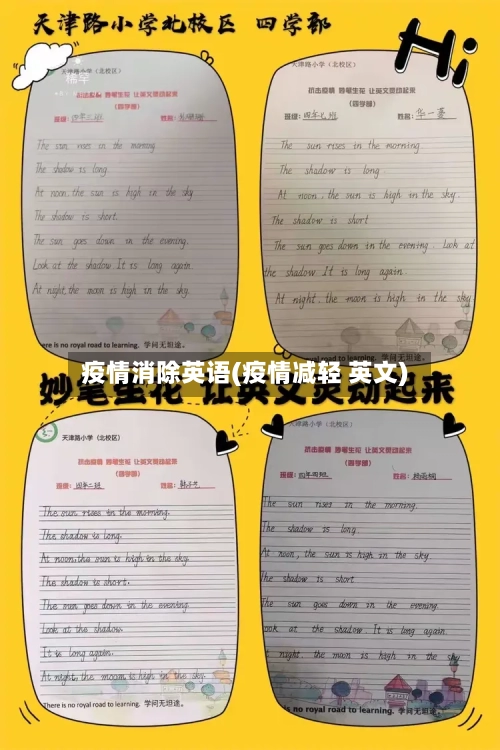 天津路小学北校区 四学部
Hi
天津路小学（北校区）
抗击疫情 妙笔生花 让英文灵动起来
（四学部）
班级：四年三班 姓名：
The sun rises in the morning.
The shadow is long.
At noon the sun is high in the sky
The shadow is short.
The sun goes down in the evening.
Look at the shadow. It is long again.
At night, the moon is high in the sky.
ere is no royal road to learning. 学问无坦途。
天津路小学（北校区）
抗击疫情 妙笔生花 让英文灵动起来
（四学部）
班级：四年七班 姓名：华一蔓
The sun rises in the morning
The shadow is long
At noon, the sun is high in the sky.
The shadow is short
The sun goes down in the evening. Look at
the shadow It is long again
At night, the moon is high in the sky
royal road to learning. 学问无坦途。
疫情消除英语(疫情减轻 英文)
妙笔生花 让英文灵动起来
天津路小学（北校区）
抗击疫情 妙笔生花 让英文灵动起来
（四学部）
班级：四年二班 姓名：
The sun rises in the morning.
The shadow is long.
At noon, the sun is high in the sky.
The shadow is short.
The sun goes down in the evening.
Look at the shadow.
It is long again.
At night, the moon is high in the sky.
There is no royal road to learning. 学问无坦途。
天津路小学（北校区）
抗击疫情 妙笔生花 让英文灵动起来
（四学部）
班级：四年四班 姓名：
The sun rises in the morning.
The shadow is long.
At noon, the sun is high in the sky.
The shadow is short
The sun goes down in the evening.
ook at the shadow. It is long again.
t night. the moon is high in the sky
is no royal road to learning. 学问无坦途。